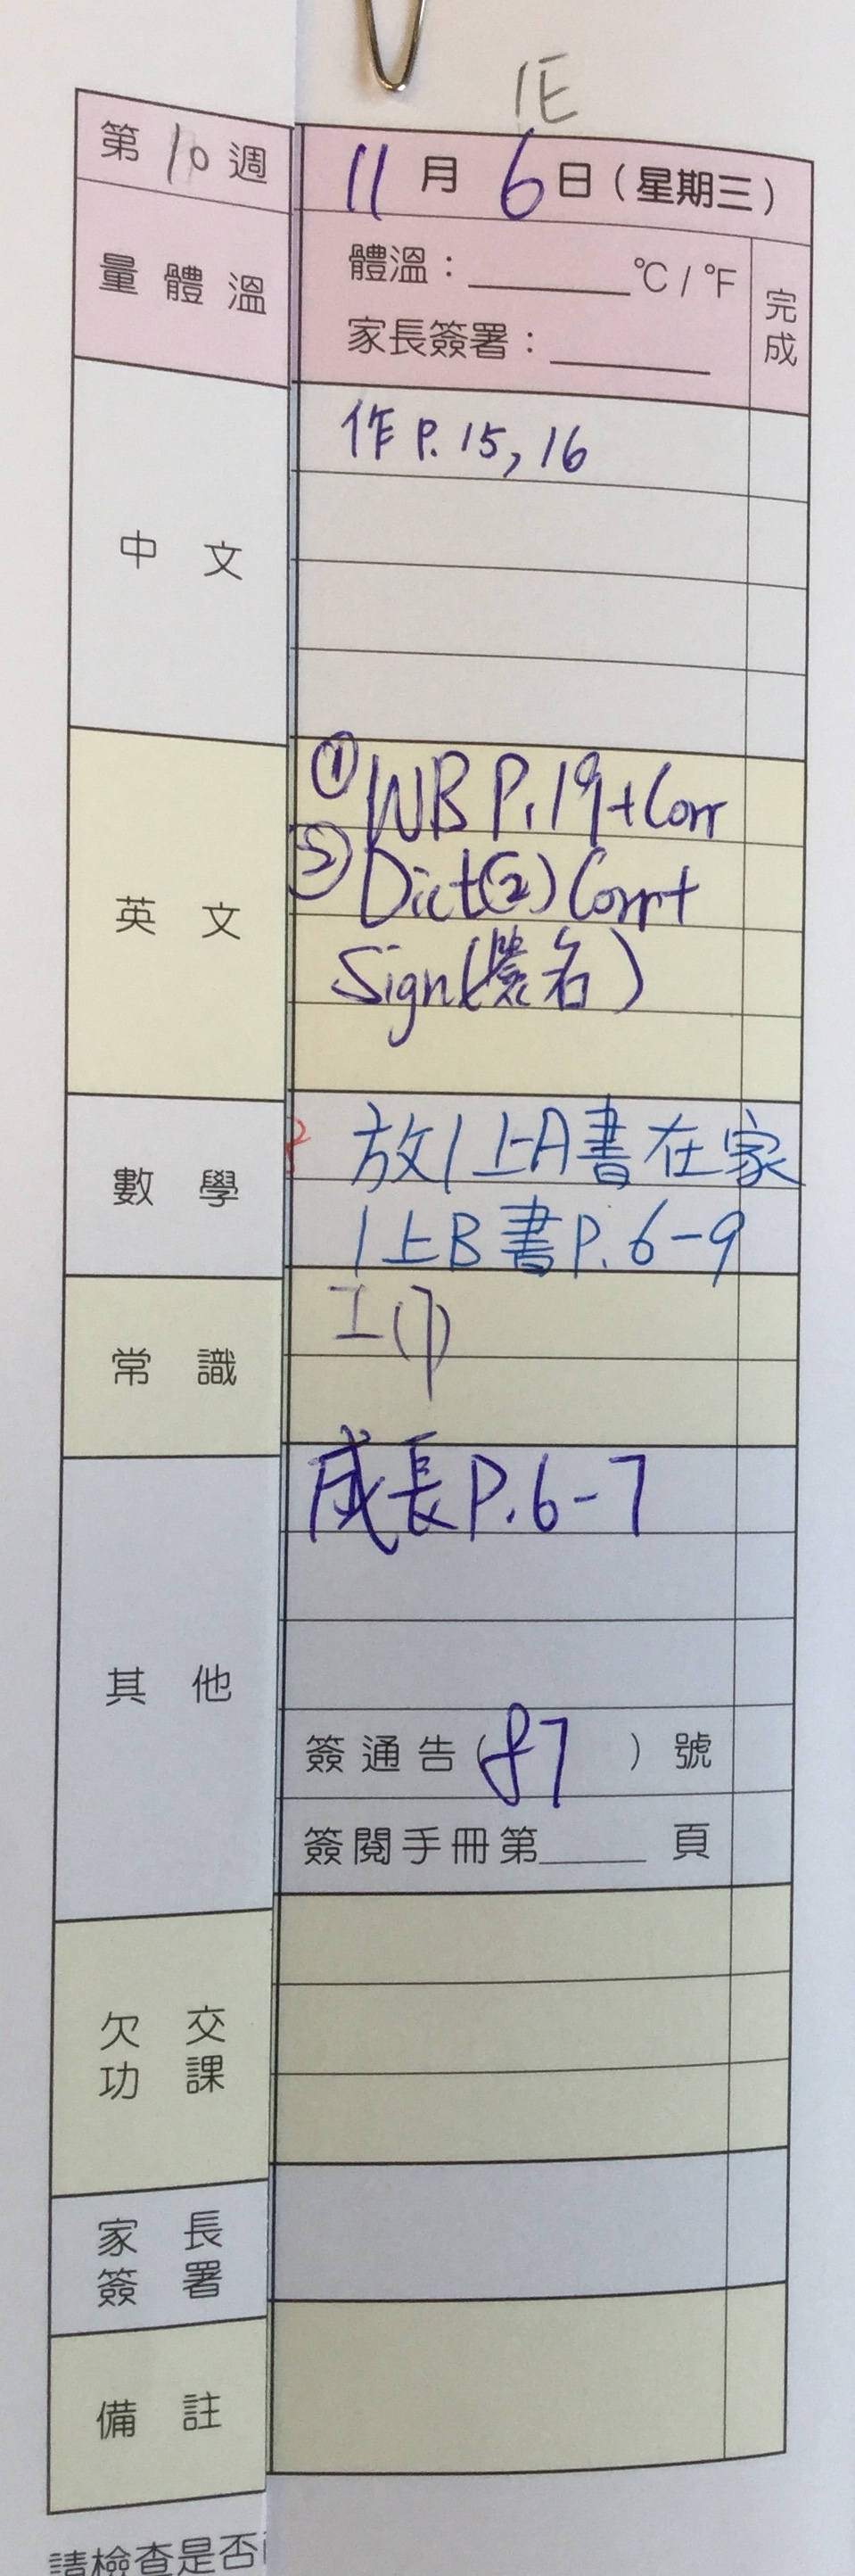 1E
第10週
11月6日(星期三)
量體溫
體溫:______℃/℉
家長簽署:______
完成
中文
作P.15,16
英文
①WB P.19+Corr
②Dict(2)Corr+
Sign(簽名)
數學
放1上A書在家
1上B書P.6-9
常識
工(7)
其他
成長P.6-7
簽通告(87)號
簽閱手冊第______頁
欠交
功課
家長
簽署
備註
請檢查是否